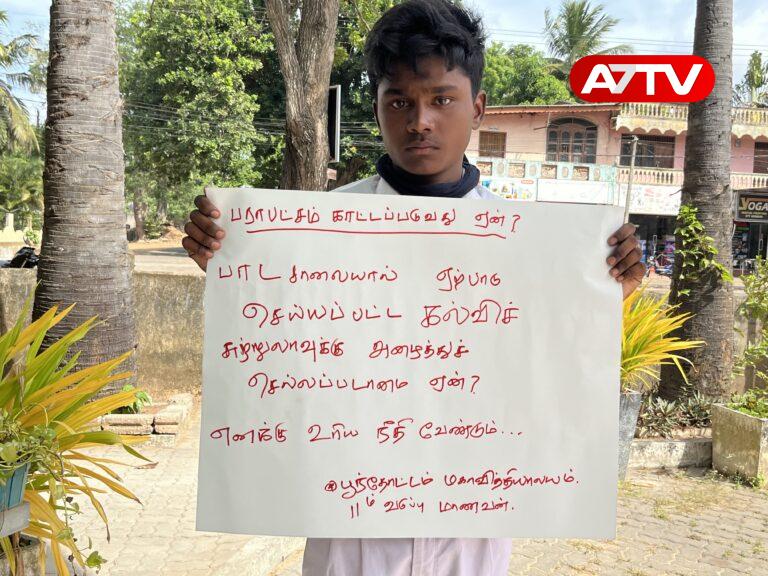 A7TV
பராபட்சம் காட்டப்படுவது ஏன்?
பாடசாலையால் ஏற்பாடு
செய்யப்பட்ட கல்விச்
சுற்றுலாவுக்கு அழைத்துச்
செல்லப்படாமை ஏன்?
எனக்கு உரிய நீதி வேண்டும்...
பூந்தோட்டம் மகாவித்தியாலயம்.
11ம் வகுப்பு மாணவன்.
YOGA